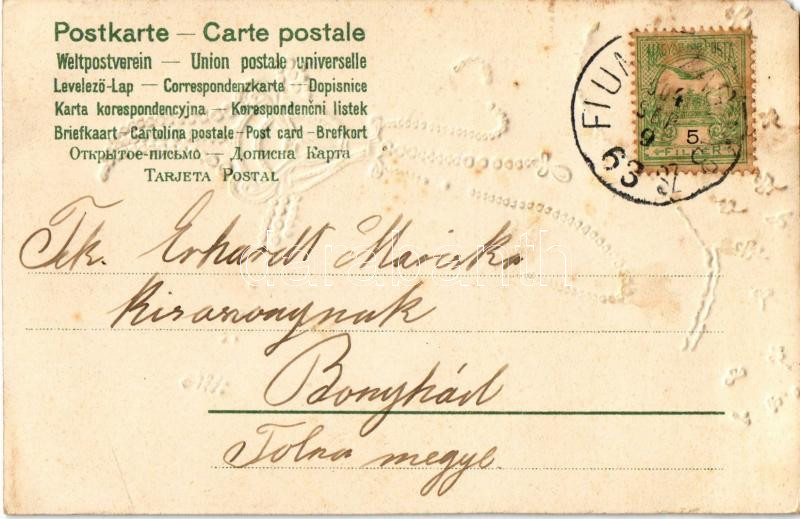 Postkarte — Carte postale
Weltpostverein — Union postale universelle
Levelezö-Lap — Correspondenzkarte — Dopisnice
Karta korespondencyjna — Korespondenční listek
Briefkaart — Cartolina postale — Post card — Brefkort
Открытое-письмо — Дописна Карта
TARJETA POSTAL
MAGYAR KIR. POSTA
5
FILLER
FIUM
904
9
63 SZ
Tek. Erhardt Mariska
Kisasszonynak
Bonyhád
Tolna megye.
darabanth